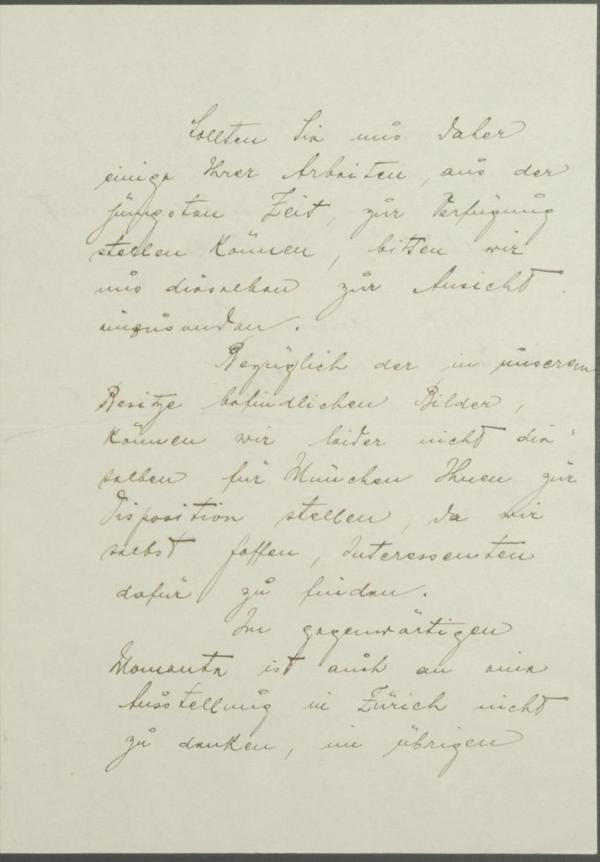 Sollten Sie uns daher
einige Ihrer Arbeiten, aus der
jüngsten Zeit, zur Verfügung
stellen können, bitten wir
uns dieselben zur Ansicht
einzusenden.
Bezüglich der in unserem
Besitze befindlichen Bilder,
können wir leider nicht die
selben für München Ihnen zur
Disposition stellen, da wir
selbst hoffen, Interessenten
dafür zu finden.
Im gegenwärtigen
Momente ist auch an eine
Ausstellung in Zürich nicht
zu denken, im übrigen